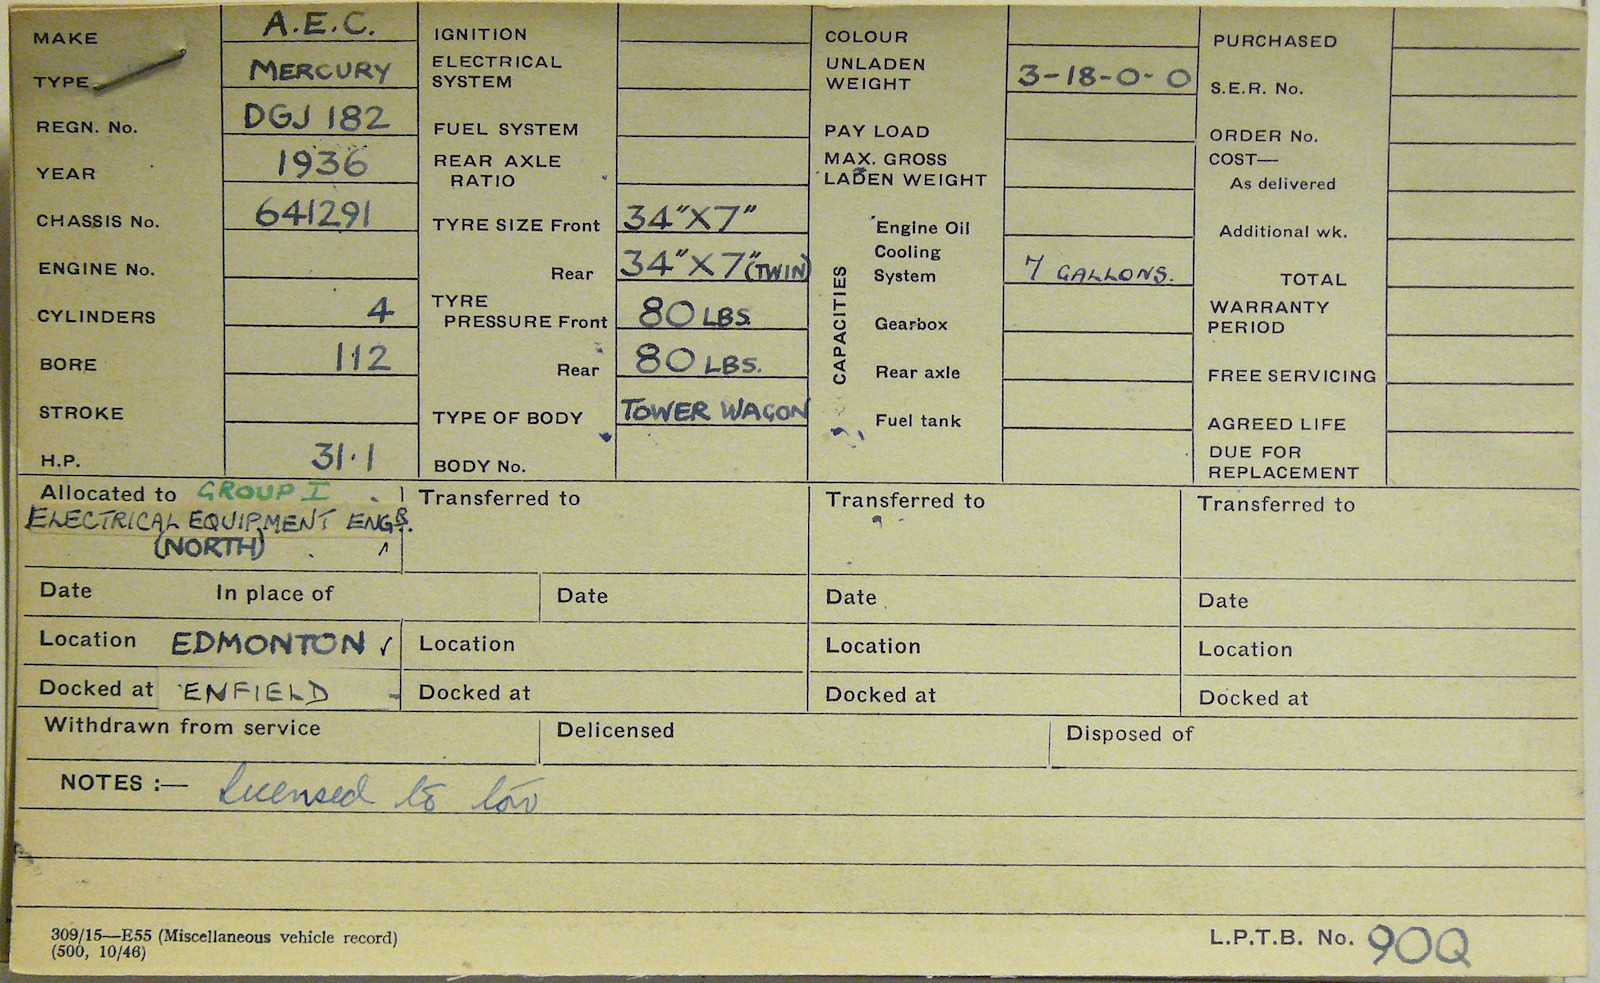 MAKE A.E.C.
TYPE MERCURY
REGN. No. DGJ 182
YEAR 1936
CHASSIS No. 641291
ENGINE No.
CYLINDERS 4
BORE 112
STROKE
H.P. 31·1
IGNITION
ELECTRICAL
SYSTEM
FUEL SYSTEM
REAR AXLE
RATIO
TYRE SIZE Front 34"X7"
Rear 34"X7"(TWIN)
TYRE
PRESSURE Front 80 LBS.
Rear 80 LBS.
TYPE OF BODY TOWER WAGON
BODY No.
COLOUR
UNLADEN
WEIGHT 3-18-0-0
PAY LOAD
MAX. GROSS
LADEN WEIGHT
CAPACITIES
Engine Oil
Cooling
System 7 GALLONS.
Gearbox
Rear axle
Fuel tank
PURCHASED
S.E.R. No.
ORDER No.
COST—
As delivered
Additional wk.
TOTAL
WARRANTY
PERIOD
FREE SERVICING
AGREED LIFE
DUE FOR
REPLACEMENT
Allocated to GROUP I
ELECTRICAL EQUIPMENT ENGR.
(NORTH)
Transferred to
Transferred to
Transferred to
Date In place of
Date
Date
Date
Location EDMONTON ✓
Location
Location
Location
Docked at ENFIELD
Docked at
Docked at
Docked at
Withdrawn from service
Delicensed
Disposed of
NOTES :— Licensed to tow
309/15—E55 (Miscellaneous vehicle record)
(500, 10/46)
L.P.T.B. No. 90Q